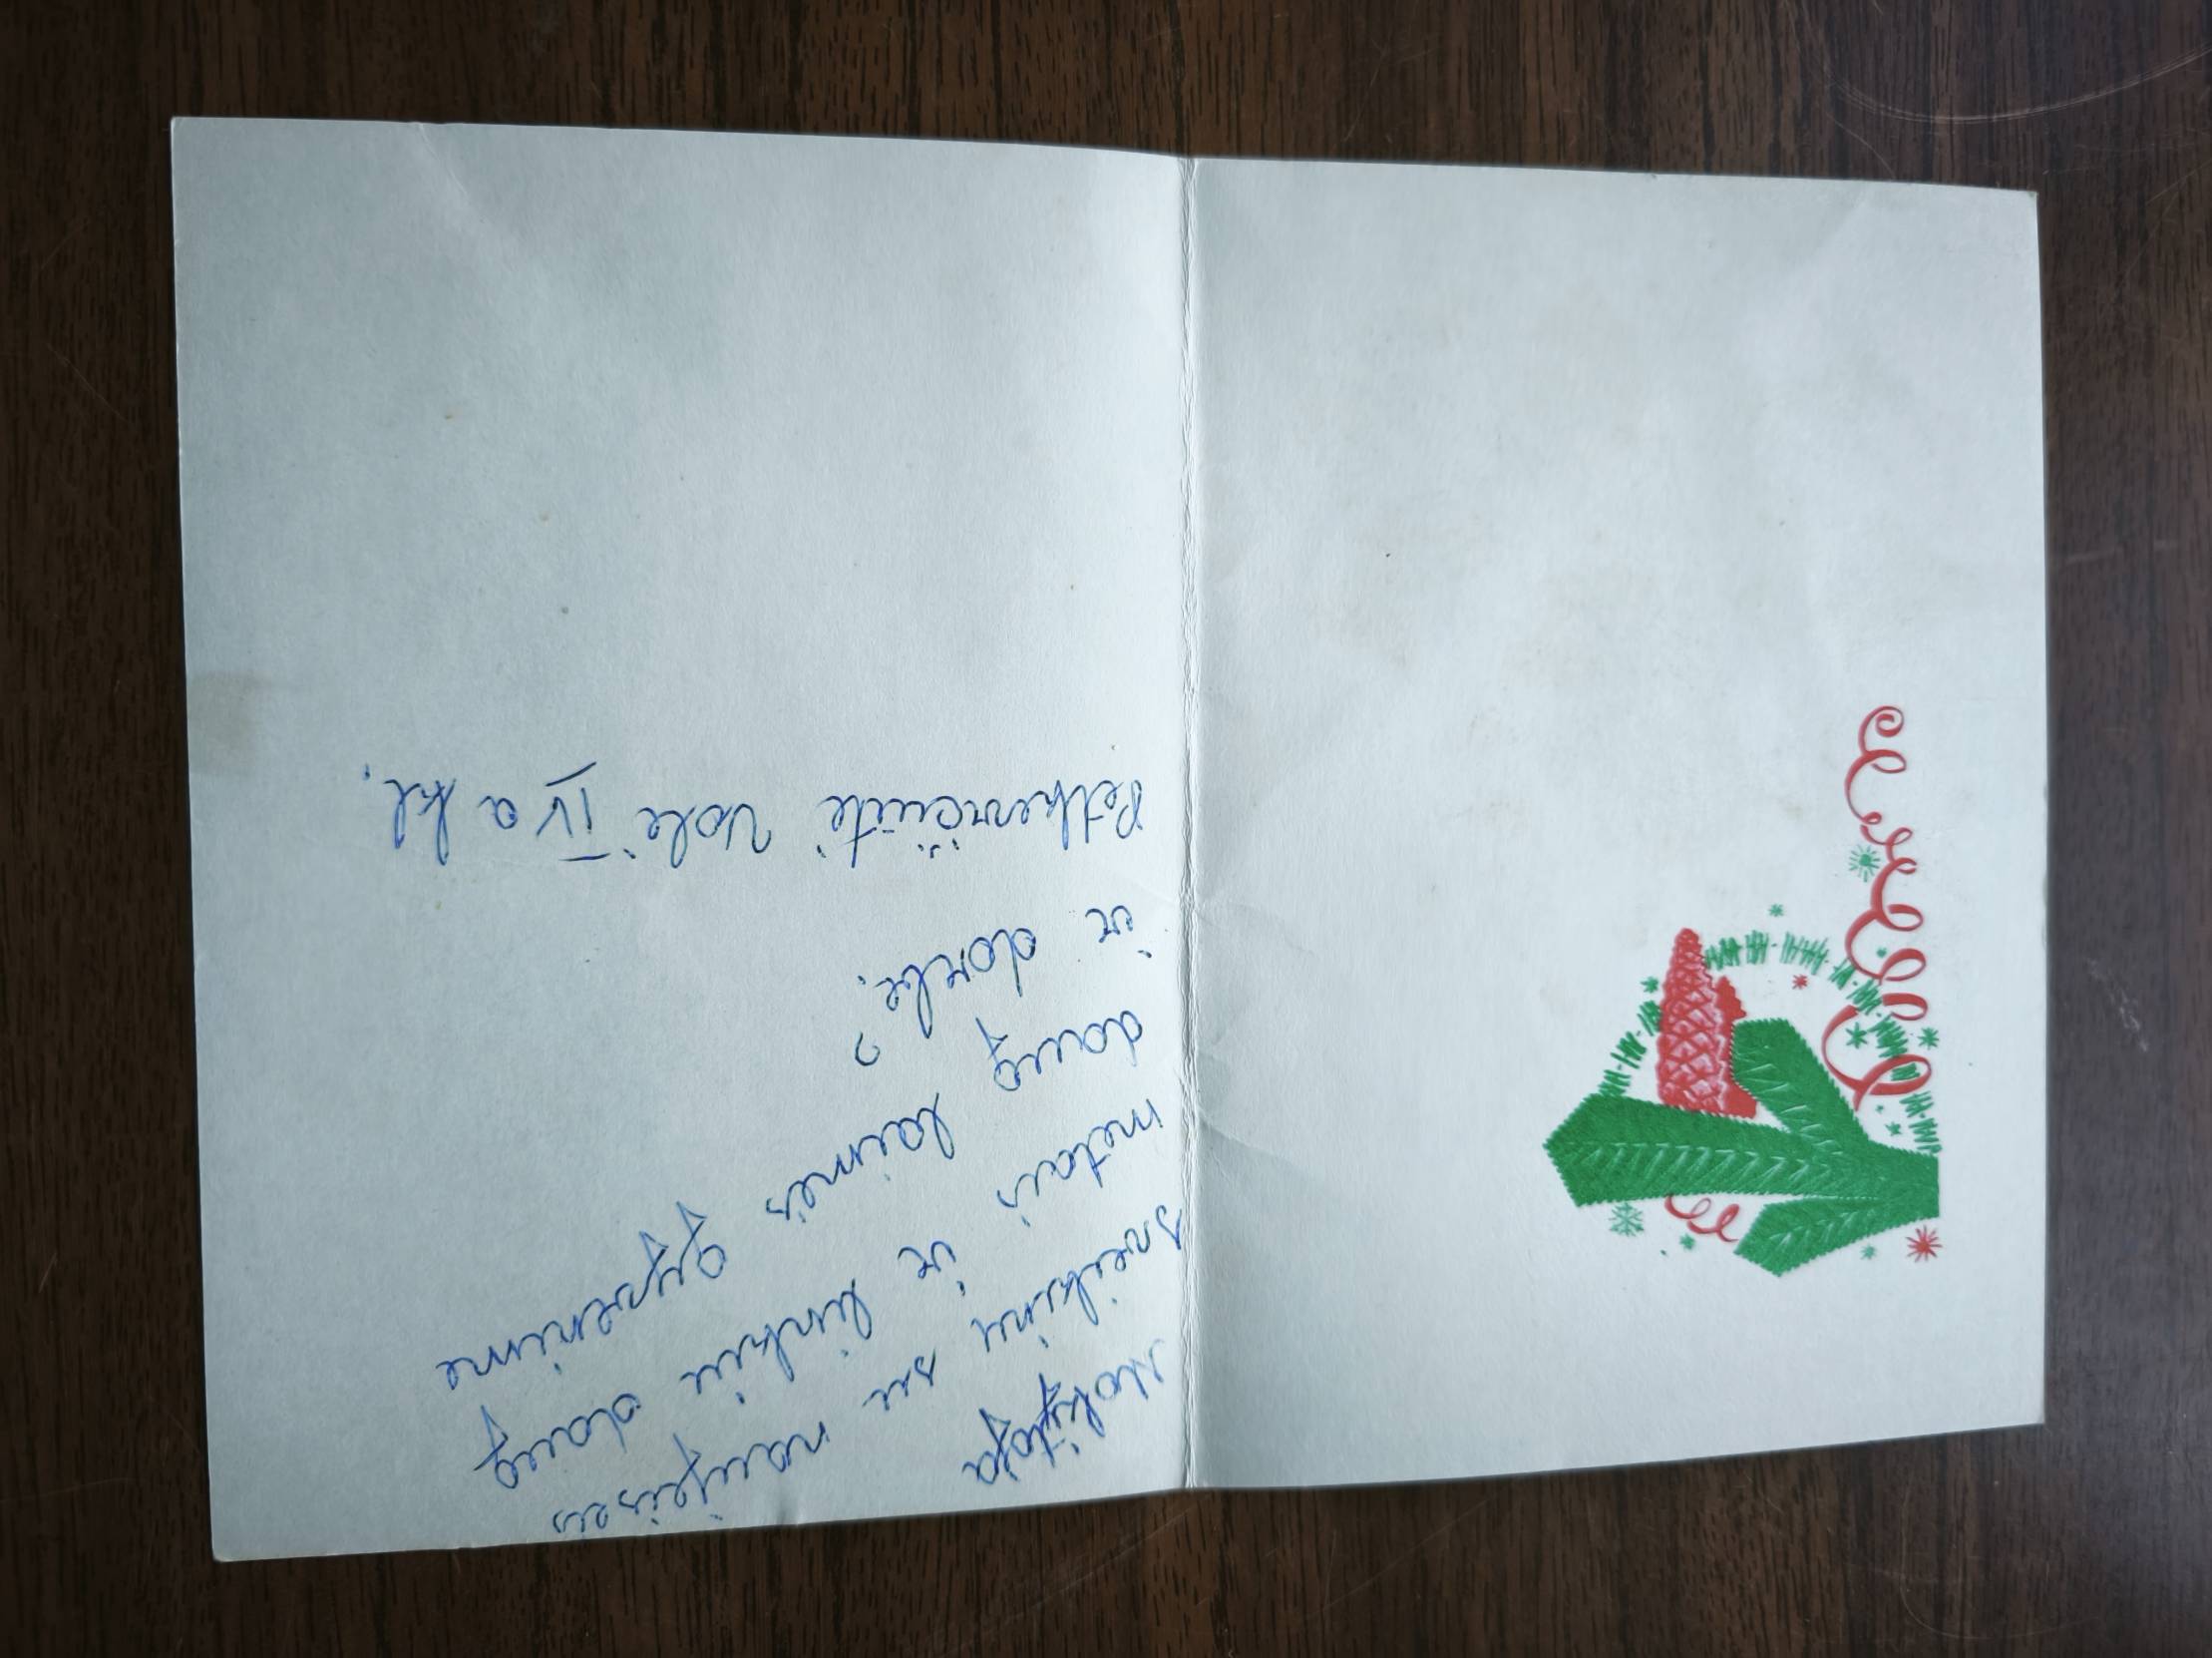 Mokytoja
Sveikinu su
metais ir linkiu daug
daug laimės gyvenime
ir darbe.
Petkevičiūtė Valė IV a kl.